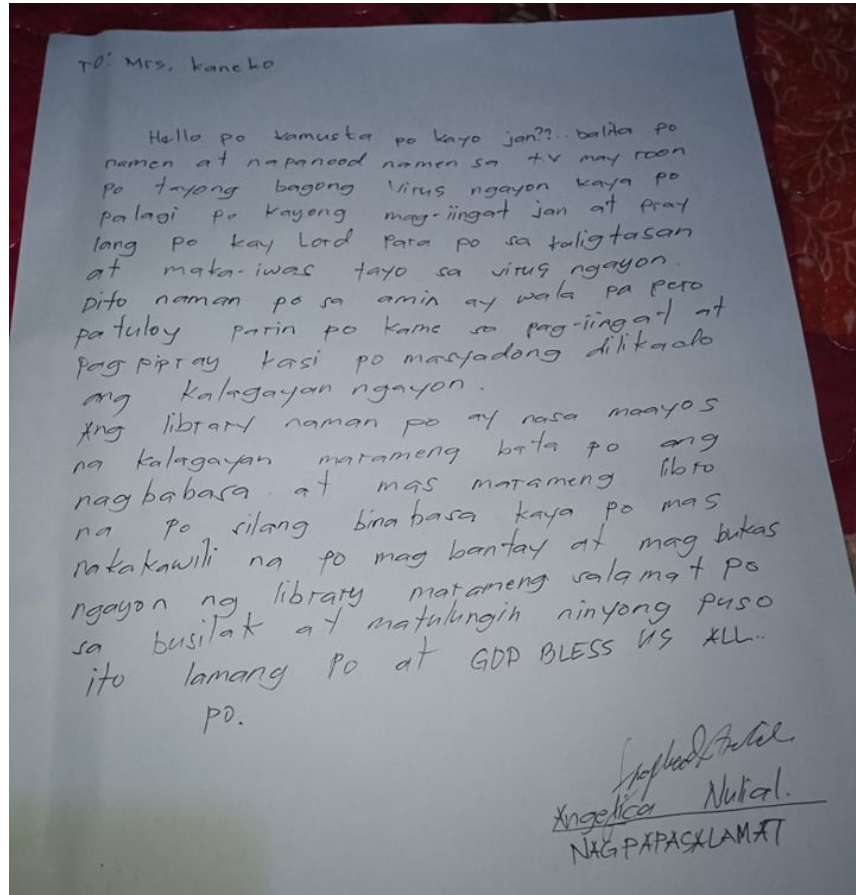 TO: Mrs, Kaneko
Hello po kamusta po kayo jan??.. balita po
namen at napanood namen sa t.v may roon
po tayong bagong Virus ngayon kaya po
palagi po kayong mag-iingat jan at pray
lang po kay Lord Para po sa kaligtasan
at maka-iwas tayo sa virus ngayon.
Dito naman po sa amin ay wala pa pero
patuloy parin po kame sa pag-iingat at
pag pipray kasi po masyadong dilikado
ang kalagayan ngayon.
Ang library naman po ay nasa maayos
na kalagayan marameng bata po ang
nagbabasa at mas marameng libro
na po silang binabasa kaya po mas
nakakawili na po mag bantay at mag bukas
ngayon ng library marameng salamat po
sa busilak at matulungin ninyong puso
ito lamang po at GOD BLESS US ALL..
po.
Angelica Nulial.
NAGPAPASALAMAT